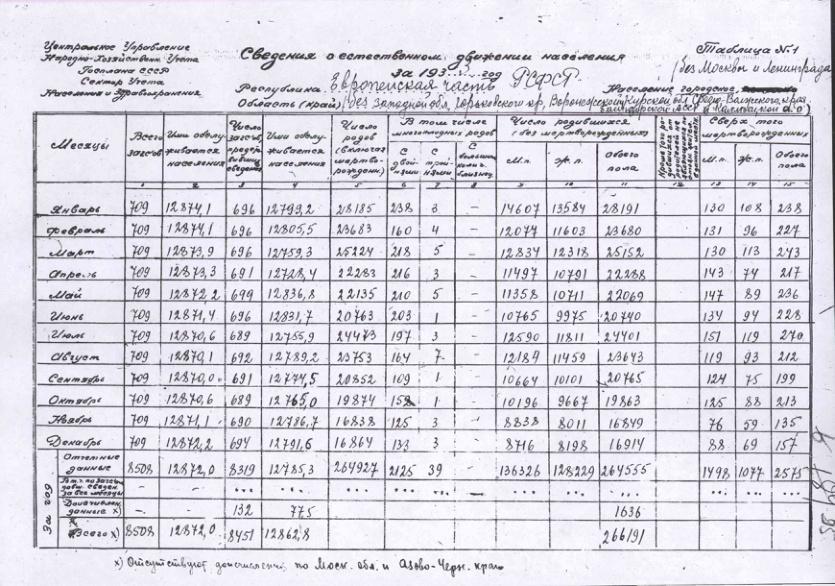 Центральное Управление
Народно-Хозяйственн. Учета
Госплана СССР
Сектор Учета
Населения и Здравоохранения
Сведения о естественном движении населения
за 193.....год
Республика Европейская часть РСФСР
Таблица №1
(без Москвы и Ленинграда
Население городское,
Область (край) (без Западной обл, Горьковского кр, Воронежской Курской обл Средне-Волжского края
Башкирской АССР и Калмыцкой а.о)
Месяцы Всего загсов Ими обслуживается населения Число загсов, представивш. сведения Ими обслуживается населения Число родов (включая мертворожден.) В том числе многоплодных родов С двойнями С тройнями С большим колич. близнец. Число родившихся (без мертворожденных) М.п. Ж.п. Обоего пола Сверх того мертворожденных М.п. Ж.п. Обоего пола
1 2 3 4 5 6 7 8 9 10 11 12 13 14 15
Январь 709 12874,1 696 12799,2 28185 238 3 – 14607 13584 28191 130 108 238
Февраль 709 12874,1 696 12805,5 23683 160 4 – 12077 11603 23680 131 96 227
Март 709 12873,9 696 12759,3 25224 218 5 – 12834 12318 25152 130 113 243
Апрель 709 12873,3 691 12728,4 22283 216 3 – 11497 10791 22288 143 74 217
Май 709 12872,2 699 12836,8 22135 210 5 – 11358 10711 22069 147 89 236
Июнь 709 12871,4 696 12831,7 20763 203 1 – 10765 9975 20740 134 94 228
Июль 709 12870,6 689 12755,9 24473 197 3 – 12590 11811 24401 151 119 270
Август 709 12870,1 692 12789,2 23753 164 7 – 12184 11459 23643 119 93 212
Сентябрь 709 12870,0 691 12774,5 20852 109 1 – 10664 10101 20765 124 75 199
Октябрь 709 12870,6 689 12765,0 19874 158 1 – 10196 9667 19863 125 88 213
Ноябрь 709 12871,1 690 12786,7 16838 125 3 – 8838 8011 16849 76 59 135
Декабрь 709 12872,2 694 12791,6 16864 133 3 – 8716 8198 16914 88 69 157
За год
Отчетные данные 8508 12872,0 8319 12785,3 264927 2125 39 136326 128229 264555 1498 1077 2575
– – ... ... ... ... ... ... ... ... ... ... ...
данные x) – – 132 775 1636
Всего x) 8508 12872,0 8451 12862,8 266191
x) Отсутствуют дочисления по Моск. обл. и Азово-Черн. краю